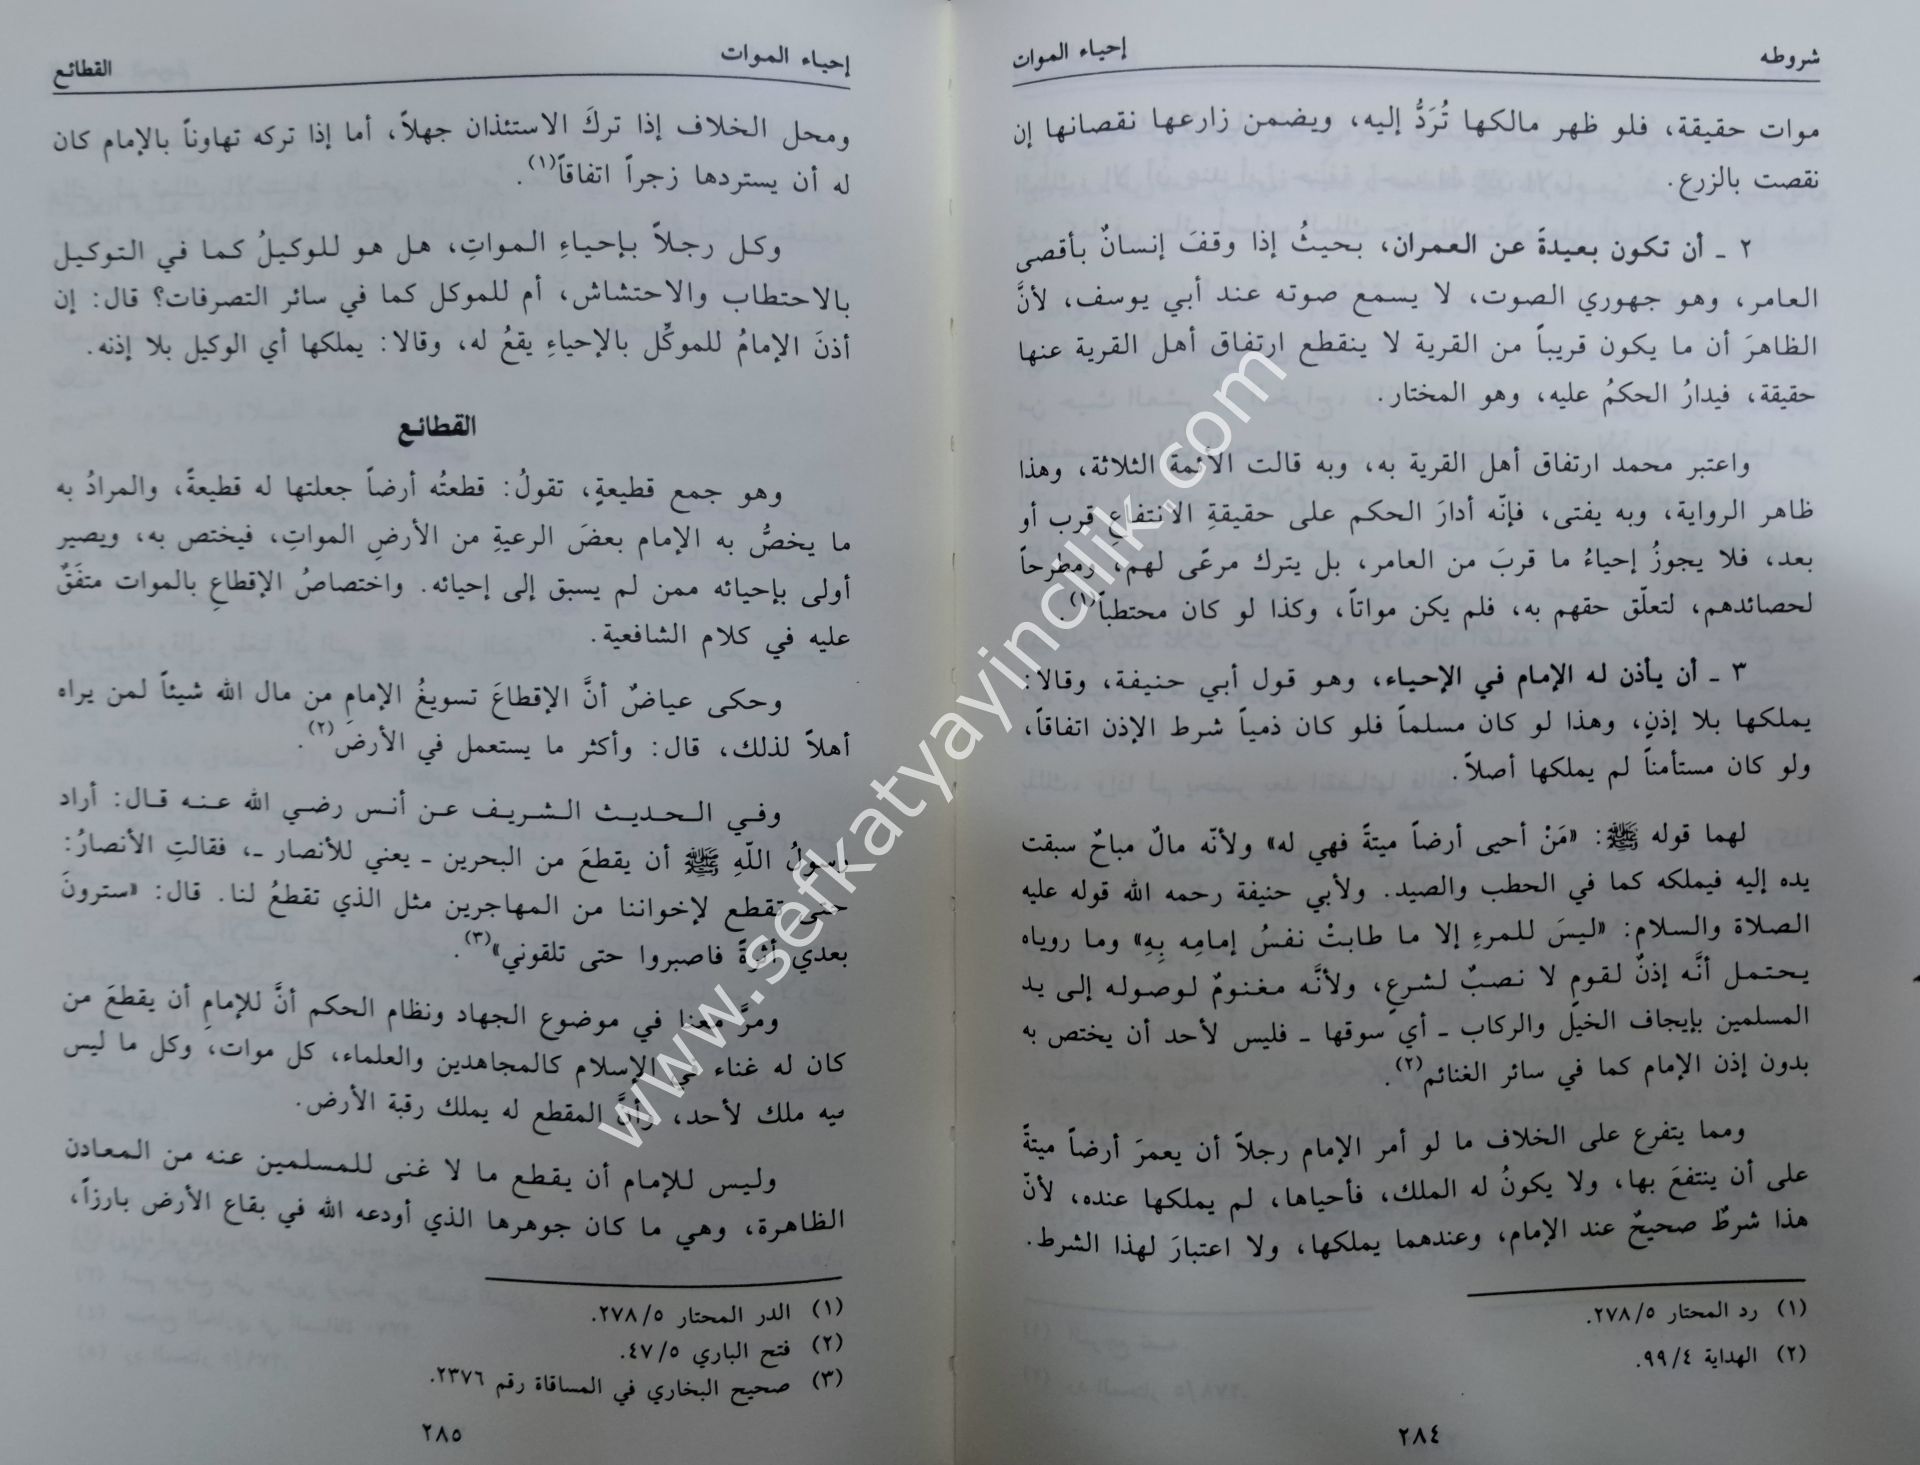 شروطه
إحياء الموات
موات حقيقة، فلو ظهر مالكها تُرَدُّ إليه، ويضمن زارعها نقصانها إن
نقصت بالزرع.
٢ ـ أن تكون بعيدةً عن العمران، بحيثُ إذا وقفَ إنسانٌ بأقصى
العامر، وهو جهوري الصوت، لا يسمع صوته عند أبي يوسف، لأنَّ
الظاهرَ أن ما يكون قريباً من القرية لا ينقطع ارتفاق أهل القرية عنها
حقيقة، فيدارُ الحكمُ عليه، وهو المختار.
واعتبر محمد ارتفاق أهل القرية به، وبه قالت الأئمة الثلاثة، وهذا
ظاهر الرواية، وبه يفتى، فإنّه أدارَ الحكم على حقيقةِ الانتفاعِ قرب أو
بعد، فلا يجوزُ إحياءُ ما قربَ من العامر، بل يترك مرعًى لهم، ومطرحاً
لحصائدهم، لتعلّق حقهم به، فلم يكن مواتاً، وكذا لو كان محتطباً(١).
٣ ـ أن يأذن له الإمام في الإحياء، وهو قول أبي حنيفة، وقالا:
يملكها بلا إذنٍ، وهذا لو كان مسلماً فلو كان ذمياً شرط الإذن اتفاقاً،
ولو كان مستأمناً لم يملكها أصلاً.
لهما قوله ﷺ: «مَنْ أحيى أرضاً ميتةً فهي له» ولأنّه مالٌ مباحٌ سبقت
يده إليه فيملكه كما في الحطب والصيد. ولأبي حنيفة رحمه الله قوله عليه
الصلاة والسلام: «ليسَ للمرءِ إلا ما طابتْ نفسُ إمامِه بِهِ» وما روياه
يحتمل أنَّه إذنٌ لقومٍ لا نصبٌ لشرعٍ، ولأنَّه مغنومٌ لوصوله إلى يد
المسلمين بإيجاف الخيل والركاب ـ أي سوقها ـ فليس لأحد أن يختص به
بدون إذن الإمام كما في سائر الغنائم(٢).
ومما يتفرع على الخلاف ما لو أمر الإمام رجلاً أن يعمرَ أرضاً ميتةً
على أن ينتفعَ بها، ولا يكونُ له الملك، فأحياها، لم يملكها عنده، لأنّ
هذا شرطٌ صحيحٌ عند الإمام، وعندهما يملكها، ولا اعتبارَ لهذا الشرط.
(١) رد المحتار ٢٧٨/٥.
(٢) الهداية ٩٩/٤.
٢٨٤
إحياء الموات
القطائع
ومحل الخلاف إذا تركَ الاستئذان جهلاً، أما إذا تركه تهاوناً بالإمام كان
له أن يستردها زجراً اتفاقاً(١).
وكل رجلاً بإحياءِ المواتِ، هل هو للوكيلُ كما في التوكيل
بالاحتطاب والاحتشاش، أم للموكل كما في سائر التصرفات؟ قال: إن
أذنَ الإمامُ للموكِّل بالإحياءِ يقعُ له، وقالا: يملكها أي الوكيل بلا إذنه.
القطائع
وهو جمع قطيعةٍ، تقولُ: قطعتُه أرضاً جعلتها له قطيعةً، والمرادُ به
ما يخصُّ به الإمام بعضَ الرعيةِ من الأرضِ المواتِ، فيختص به، ويصير
أولى بإحيائه ممن لم يسبق إلى إحيائه. واختصاصُ الإقطاعِ بالموات متفَقٌ
عليه في كلام الشافعية.
وحكى عياضٌ أنَّ الإقطاعَ تسويغُ الإمامِ من مال الله شيئاً لمن يراه
أهلاً لذلك، قال: وأكثر ما يستعمل في الأرض(٢).
وفي الحديث الشريف عن أنس رضي الله عنه قال: أراد
رسولُ اللّهِ ﷺ أن يقطعَ من البحرين ـ يعني للأنصار ـ، فقالتِ الأنصارُ:
حتى تقطع لإخواننا من المهاجرين مثل الذي تقطعُ لنا. قال: «سترونَ
بعدي أثرةً فاصبروا حتى تلقوني»(٣).
ومرَّ معنا في موضوع الجهاد ونظام الحكم أنَّ للإمامِ أن يقطعَ من
كان له غناء في الإسلام كالمجاهدين والعلماء، كل موات، وكل ما ليس
فيه ملك لأحد، وأنَّ المقطع له يملك رقبة الأرض.
وليس للإمام أن يقطع ما لا غنى للمسلمين عنه من المعادن
الظاهرة، وهي ما كان جوهرها الذي أودعه الله في بقاع الأرض بارزاً،
(١) الدر المحتار ٢٧٨/٥.
(٢) فتح الباري ٤٧/٥.
(٣) صحيح البخاري في المساقاة رقم ٢٣٧٦.
٢٨٥
www.sefkatyayincilik.com